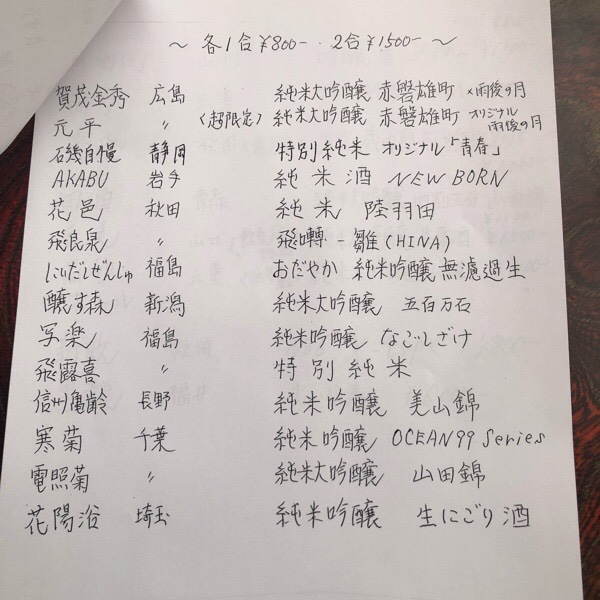 〜 各1合¥800- ・ 2合¥1500- 〜
賀茂金秀 広島 純米大吟醸 赤磐雄町 ×雨後の月
元平 〃 <超限定> 純米大吟醸 赤磐雄町 オリジナル 雨後の月
磯自慢 静岡 特別純米 オリジナル「青春」
AKABU 岩手 純米酒 NEW BORN
花邑 秋田 純米 陸羽田
飛良泉 〃 飛囀 - 雛(HINA)
にいだしぜんしゅ 福島 おだやか 純米吟醸 無濾過生
醸す森 新潟 純米大吟醸 五百万石
写楽 福島 純米吟醸 なごしざけ
飛露喜 〃 特別純米
信州亀齢 長野 純米吟醸 美山錦
寒菊 千葉 純米吟醸 OCEAN99 Series
電照菊 〃 純米大吟醸 山田錦
花陽浴 埼玉 純米吟醸 生にごり酒